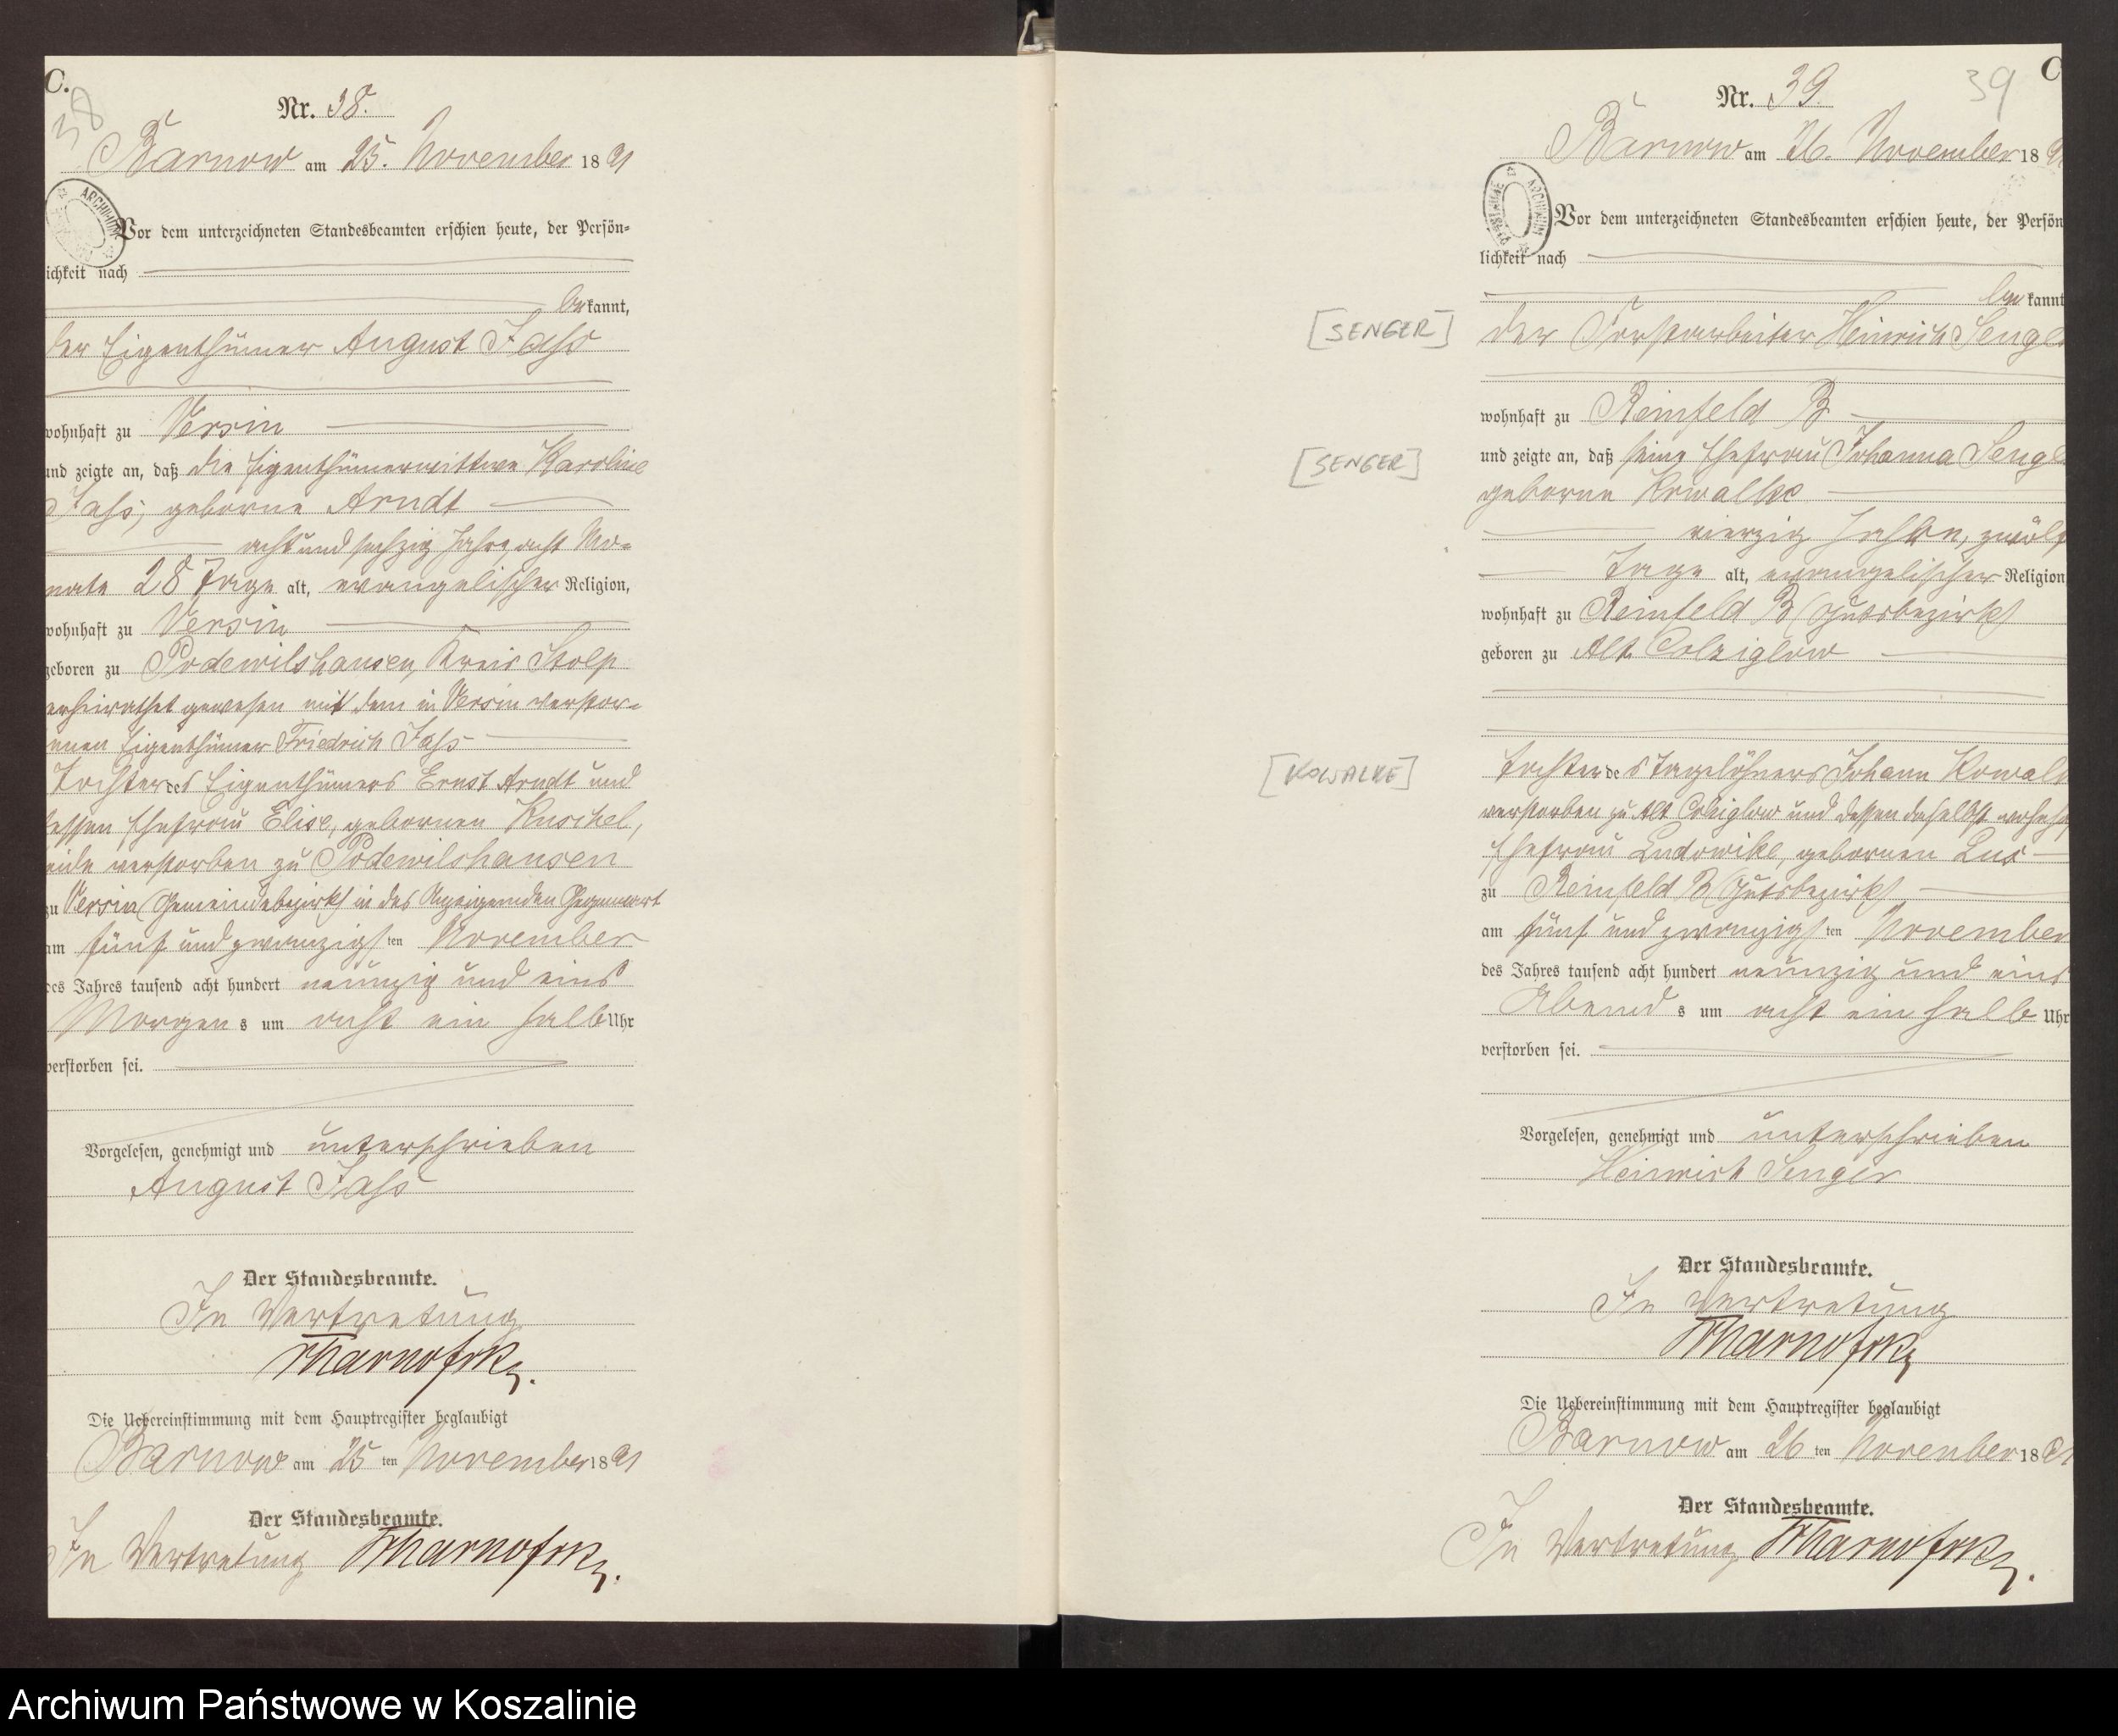 C.
38
Nr. 38.
Barnow am 25. November 1891
ARCHIWUM
Vor dem unterzeichneten Standesbeamten erschien heute, der Persön-
ichkeit nach
bekannt,
der Eigenthümer August Jass
wohnhaft zu Versin
und zeigte an, daß die Eigenthümerwittwe Karoline
Jass, geborne Arndt
acht und sechzig Jahre acht Mo-
nate 28 Tage alt, evangelischer Religion,
wohnhaft zu Versin
geboren zu Podewilshausen, Kreis Stolp
erheirathet gewesen mit dem in Versin verstor-
enen Eigenthümer Friedrich Jass
Tochter des Eigenthümers Ernst Arndt und
dessen Ehefrau Elise, gebornen Kuschel,
eide verstorben zu Podewilshausen
zu Versin (Gemeindebezirk) in des Anzeigenden Gegenwart
am fünf und zwanzigsten November
des Jahres tausend acht hundert neunzig und eins
Morgens um acht ein halb Uhr
verstorben sei.
Vorgelesen, genehmigt und unterschrieben
August Jass
Der Standesbeamte.
In Vertretung
Die Uebereinstimmung mit dem Hauptregister beglaubigt
Barnow am 25 ten November 1891
Der Standesbeamte.
In Vertretung
C
39
Nr. 39.
Barnow am 26. November 189
PAŃSTWOWE ARCHIWUM
Vor dem unterzeichneten Standesbeamten erschien heute, der Persön
lichkeit nach
bekannt
[SENGER] der Forstarbeiter Heinrich Senge
wohnhaft zu Reinfeld B
[SENGER] und zeigte an, daß seine Ehefrau Johanna Senge
geborne Kowalke
vierzig Jahre, zwölf
Tage alt, evangelischer Religion
wohnhaft zu Reinfeld B (Gutsbezirk)
geboren zu Alt Colziglow
[KOWALKE] Tochter des Tagelöhners Johann Kowal
verstorben zu Alt Colziglow und dessen daselbst
Ehefrau Ludowike, gebornen
zu Reinfeld B (Gutsbezirk)
am fünf und zwanzigsten November
des Jahres tausend acht hundert neunzig und eins
Abends um acht ein halb Uhr
verstorben sei.
Vorgelesen, genehmigt und unterschrieben
Heinrich Senger
Der Standesbeamte.
In Vertretung
Die Uebereinstimmung mit dem Hauptregister beglaubigt
Barnow am 26 ten November 1891
Der Standesbeamte.
In Vertretung
Archiwum Państwowe w Koszalinie